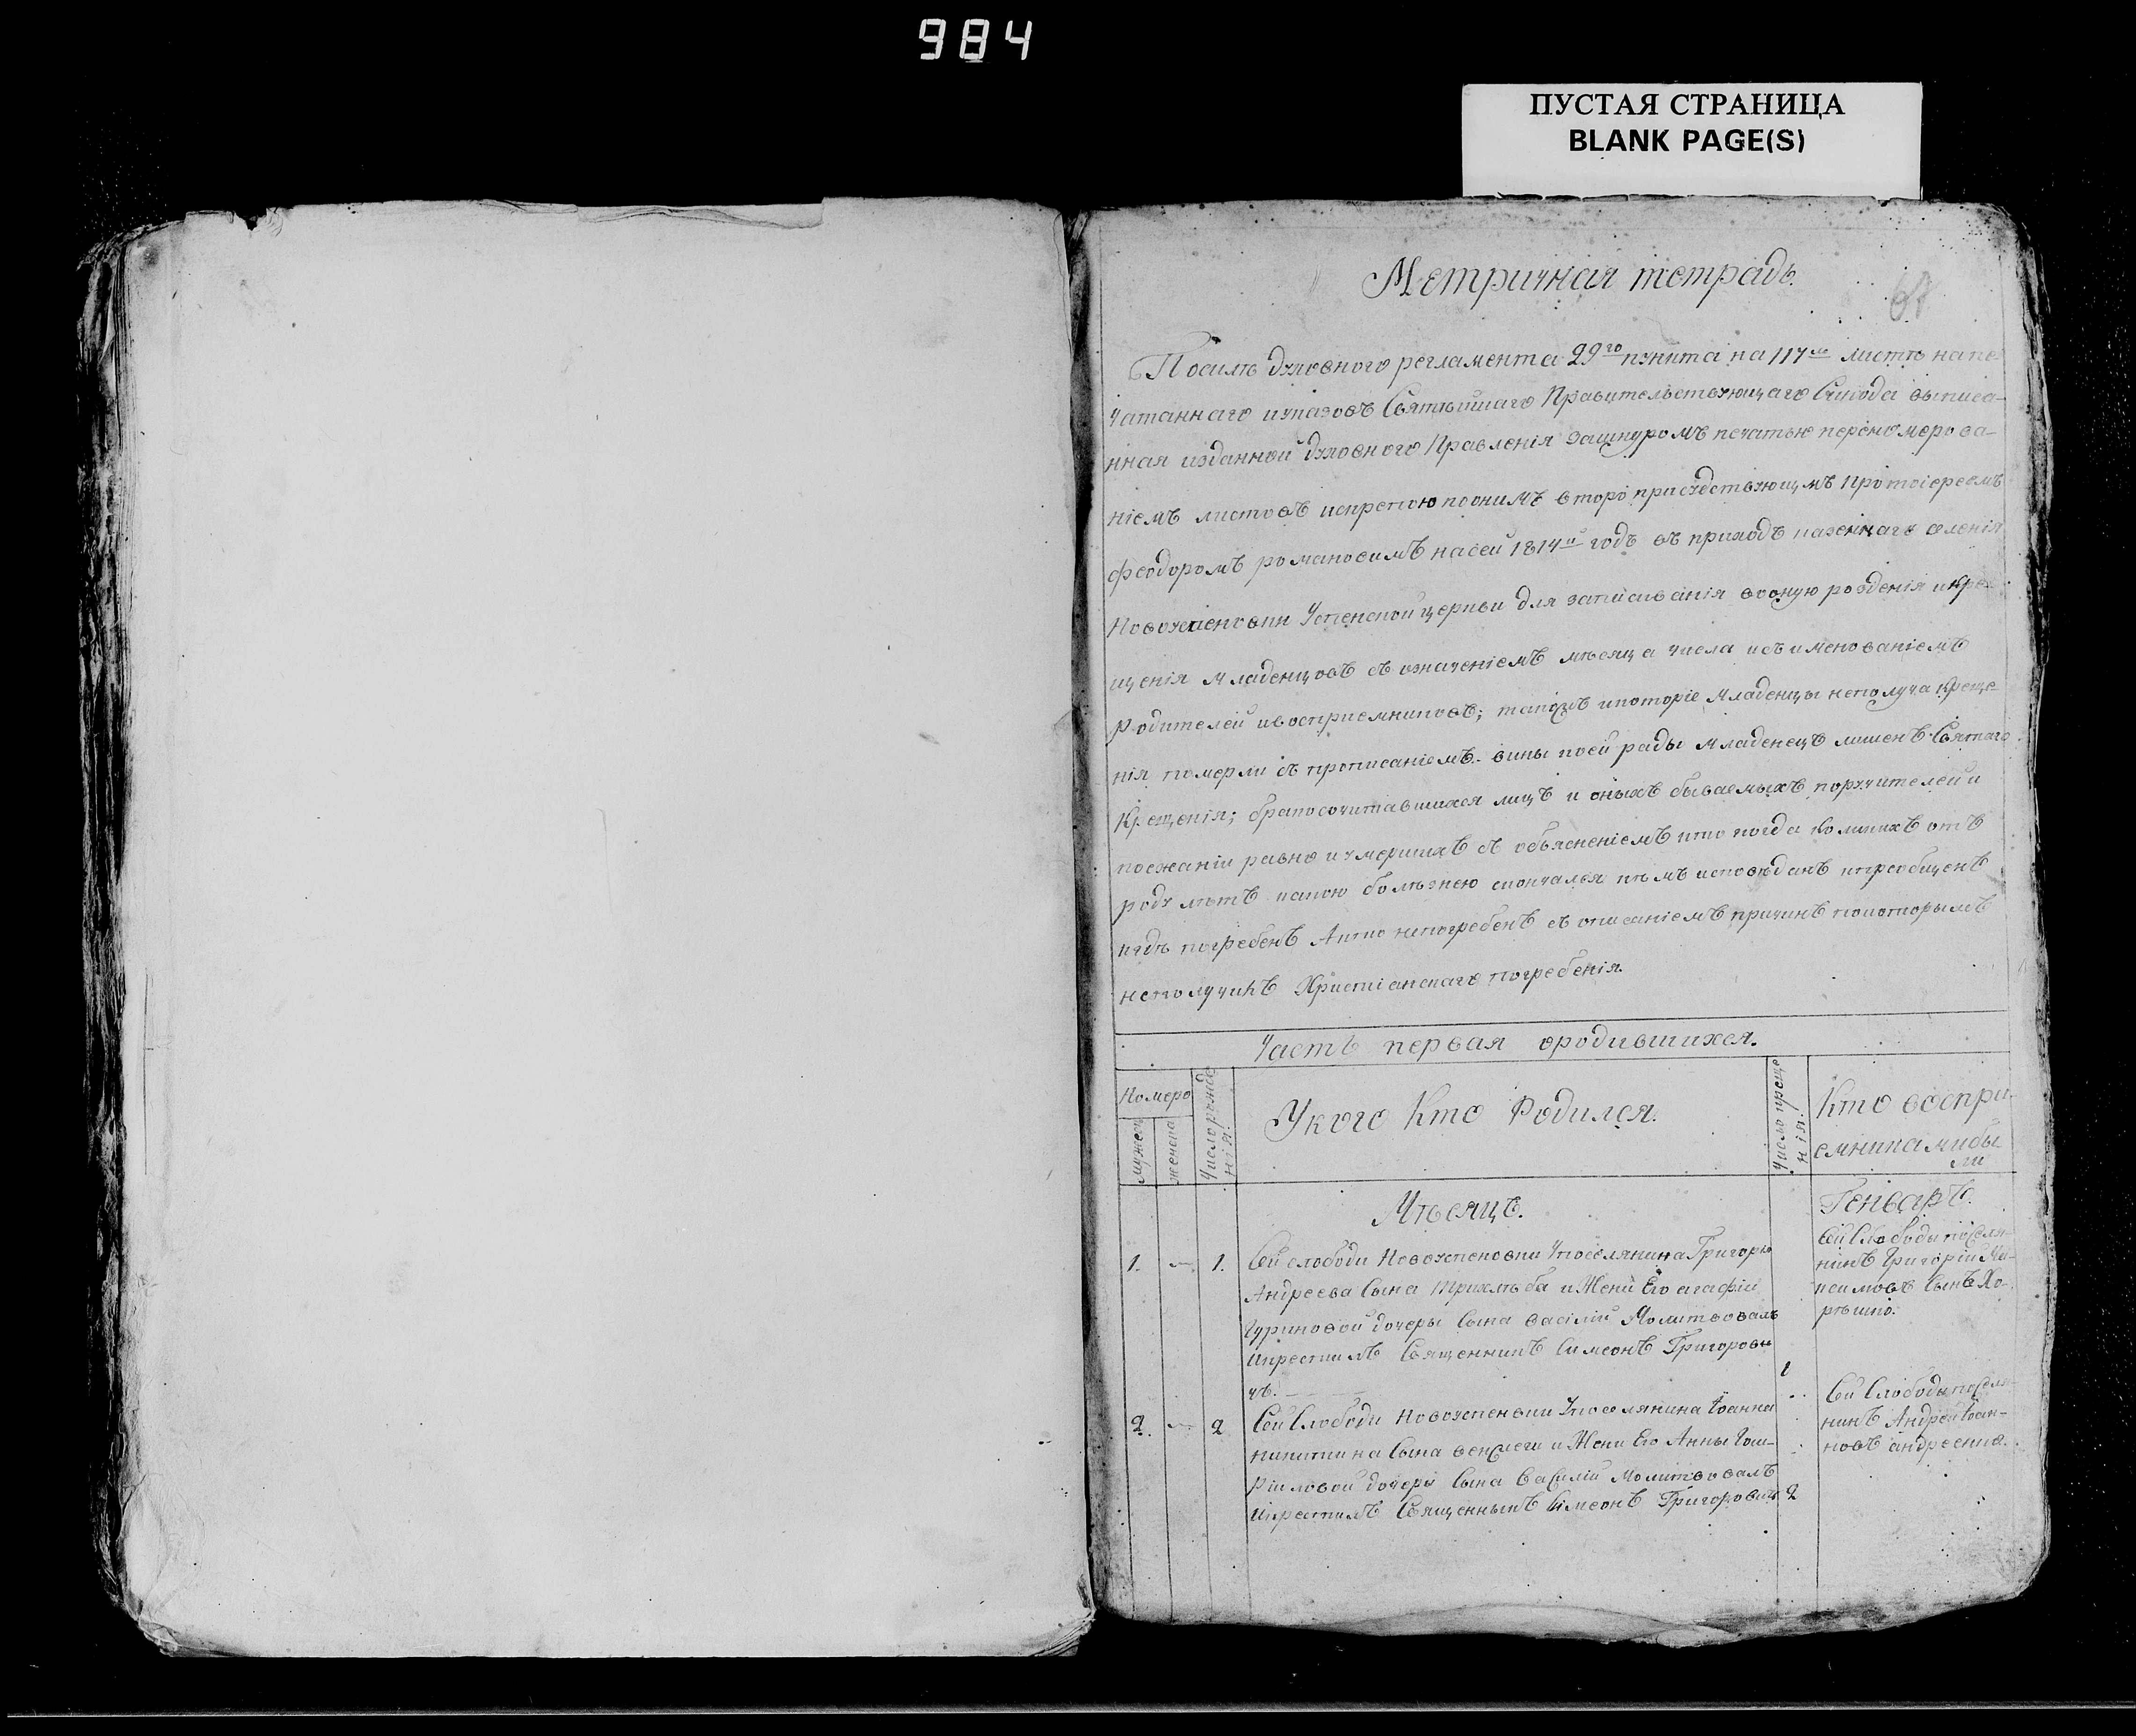 984
ПУСТАЯ СТРАНИЦА
BLANK PAGE(S)
Метричная тетрадь.
67
Посилѣ духовного регламента 29го пункта на 117м листѣ напе-
чатаннаго иуказовъ Святѣйшаго Правительствующаго Синода выписа-
нная изданной духовного Правленія зашнуромъ печатью перенумерова-
ніемъ листовъ искрепою поонимъ второприсудствующимъ Протоіереемъ
Феодоромъ романовимъ насей 1814й годъ въ приходъ казеннаго селенія
Новоуспеновки Успенской церкви для записиванія вооную рожденія икре-
щенія младенцовъ съ означеніемъ мѣсяца числа исъименованіемъ
родителей ивоспріемниковъ; такожъ икоторіе младенцы неполуча креще-
нія померли съ прописаніемъ вины коей ради младенецъ лишенъ Святаго
Крещенія; бракосочитавшихся лицъ и оныхъ бываемыхъ поручителей и
поезжаніи равно иумершихъ съ объясненіемъ кто когда коликихъ отъ
роду лѣтъ какою болѣзнею скончался кѣмъ исповѣданъ ипреобщенъ
игдѣ погребенъ Акто непогребенъ съ описаніемъ причинъ покоторымъ
неполучилъ Христіанскаго погребенія.
Часть первая ородившихся.
Номеро
мужеск
женска
Число рожде
нія.
Укого Кто Родился.
Число креще
нія.
Кто воспри-
емниками бы
ли
Мѣсяцъ.
Генварь.
1. 1. Сей слободи Новоуспеновки Упоселянина Григорія
Андреева Сына Трихлѣба иЖени Его агафіи
Гуриновой дочеры Сына василій Молитвовалъ
Икрестилъ Священникъ Симеонъ Григорови
чъ.
1
Сей Слободи поселя-
нинъ Григорій Ма-
ксимовъ Сынъ Хо-
рѣшко.
2. 2 Сей Слободи Новоуспеновки Упоселянина Іоанна
никитина Сына венсиеги иЖени Его Анны Гав-
риловой дочери Сына Василій Молитвовалъ
Икрестилъ Священникъ Симеонъ Григоровичъ 2
Сей Слободы поселя-
нинъ Андрей Іоан-
новъ андреенко.